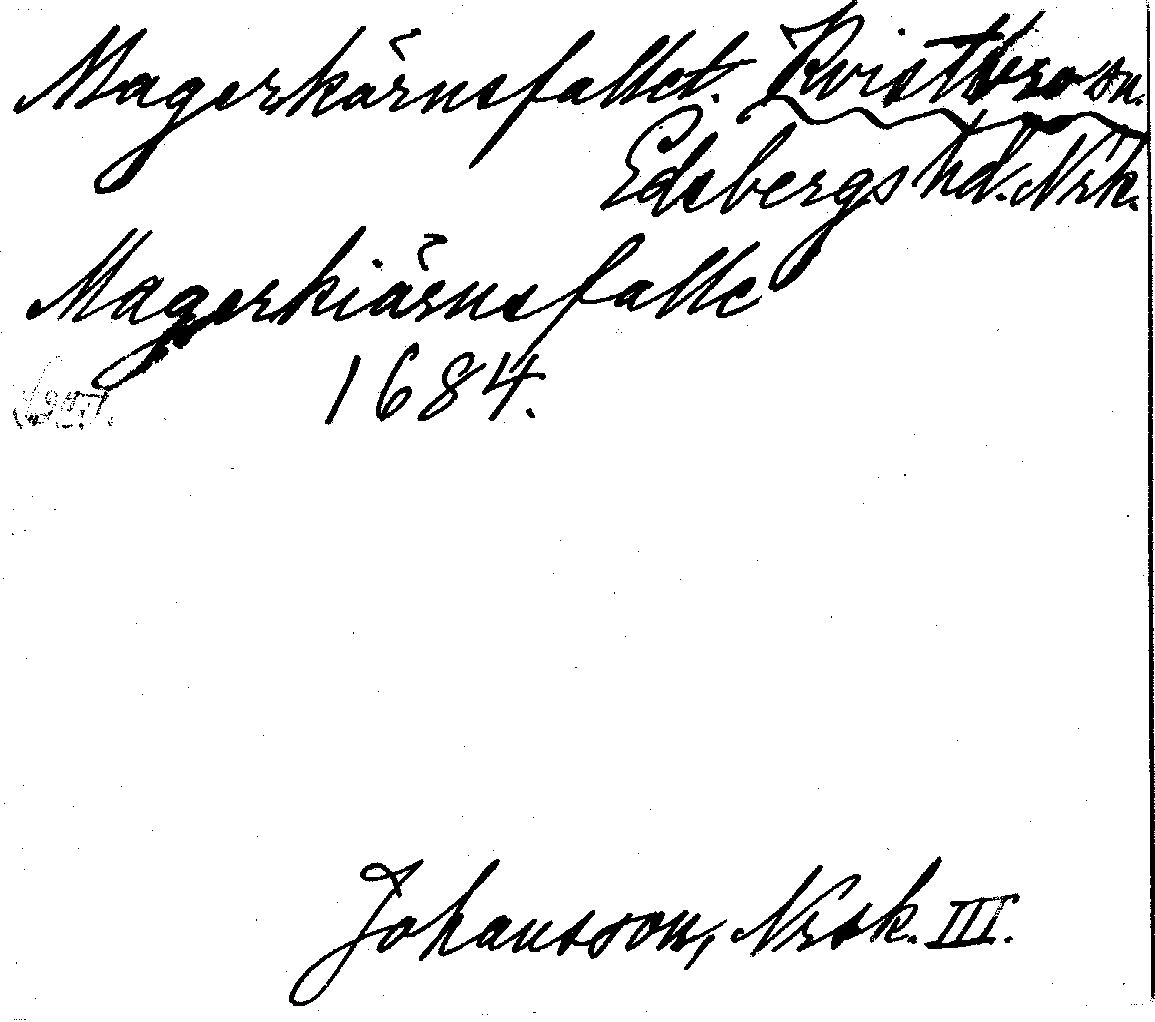 Magerkärnsfallet. Kvistbro sn.
Edsbergs hd. Nrk.
Magerkiärnsfalle
1684.
Johansson, Nrsk. III.